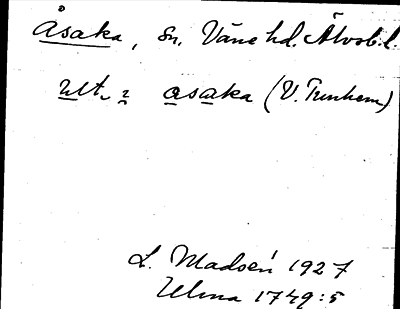 Åsaka, Sn. Väne hd. Älvsb. l.
Utt. asaka (V. Tunhem)
L. Madsén 1927
Ulma 1749:5